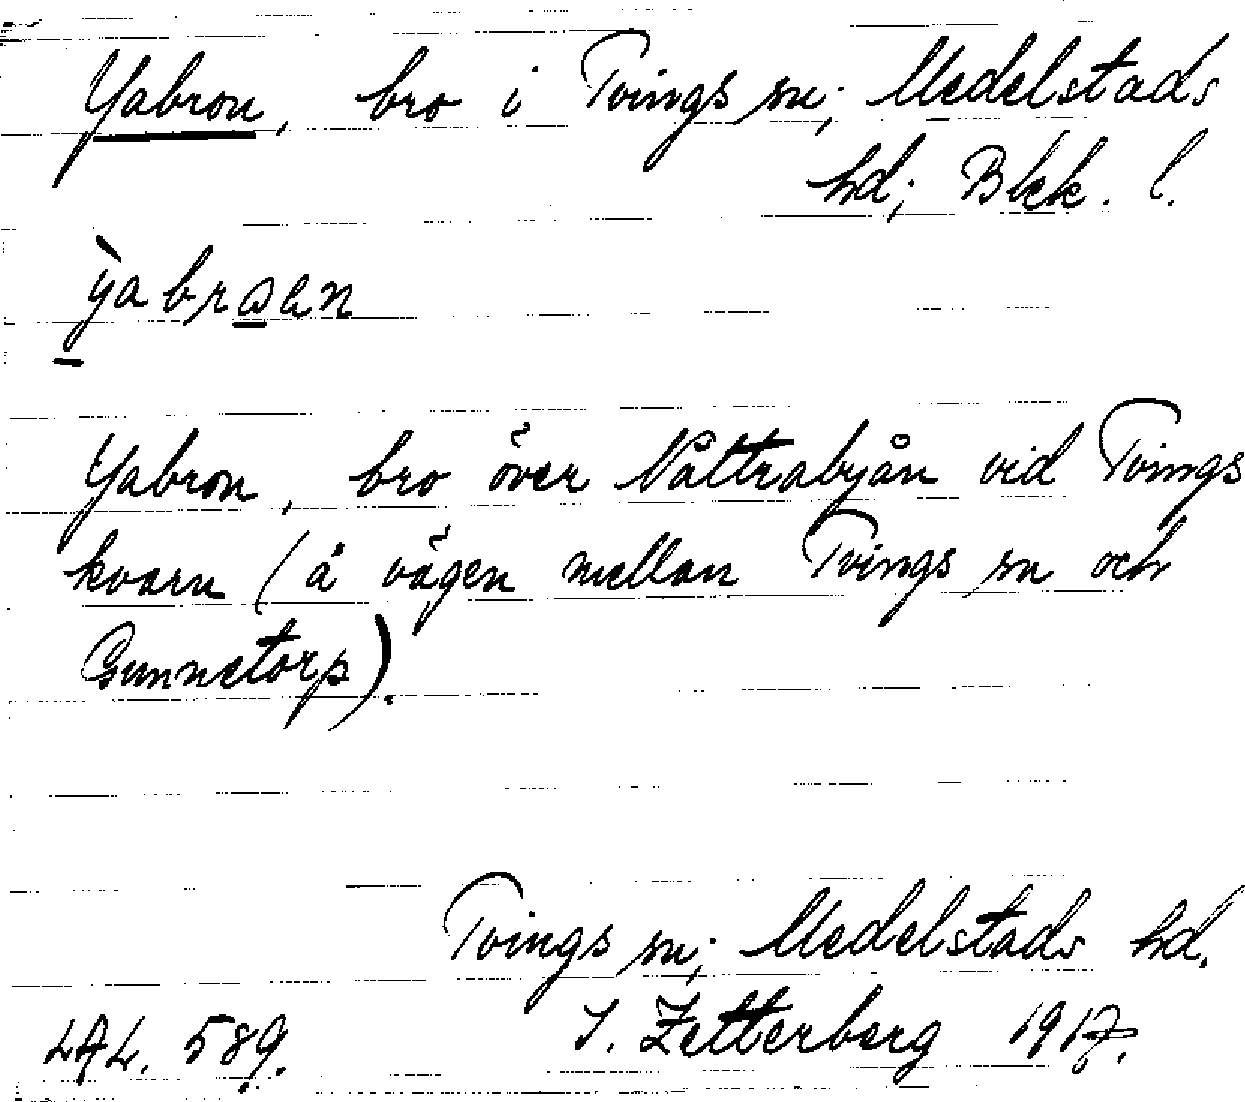 Yabron, bro i Tvings sn; Medelstads
hd; Blek. l.
ỳabroen
Yabron, bro över Nåttrabyån vid Tvings
kvarn (å vägen mellan Tvings sn och
Gunnetorp).
Tvings sn; Medelstads hd.
LAL. 589. I. Zetterberg 1917.